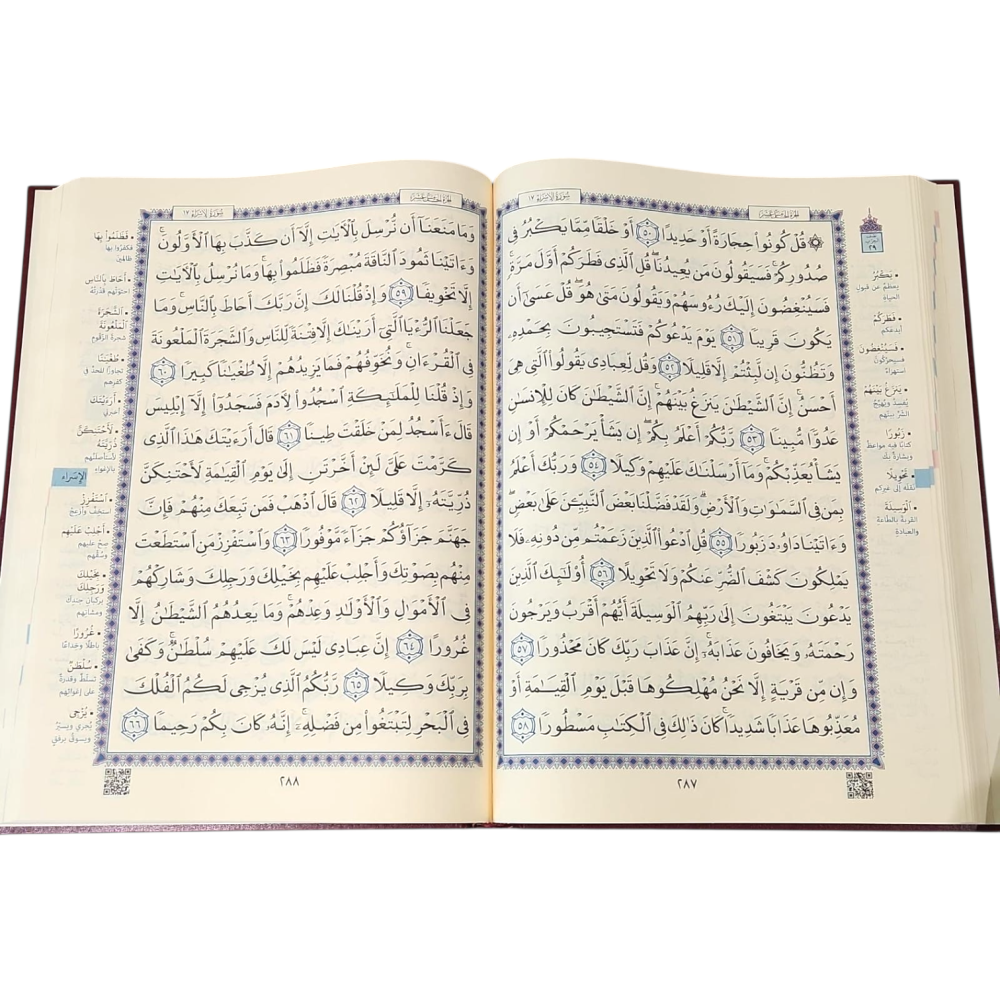 سُورَةُ الإِسْرَاءِ ١٧
الجُزْءُ الخَامِسَ عَشَرَ
٢٩
۞ قُلْ كُونُوا۟ حِجَارَةً أَوْ حَدِيدًا ٥٠ أَوْ خَلْقًا مِّمَّا يَكْبُرُ فِى
صُدُورِكُمْ ۚ فَسَيَقُولُونَ مَن يُعِيدُنَا ۖ قُلِ ٱلَّذِى فَطَرَكُمْ أَوَّلَ مَرَّةٍ ۚ
فَسَيُنْغِضُونَ إِلَيْكَ رُءُوسَهُمْ وَيَقُولُونَ مَتَىٰ هُوَ ۖ قُلْ عَسَىٰٓ أَن
يَكُونَ قَرِيبًا ٥١ يَوْمَ يَدْعُوكُمْ فَتَسْتَجِيبُونَ بِحَمْدِهِۦ
وَتَظُنُّونَ إِن لَّبِثْتُمْ إِلَّا قَلِيلًا ٥٢ وَقُل لِّعِبَادِى يَقُولُوا۟ ٱلَّتِى هِىَ
أَحْسَنُ ۚ إِنَّ ٱلشَّيْطَـٰنَ يَنزَغُ بَيْنَهُمْ ۚ إِنَّ ٱلشَّيْطَـٰنَ كَانَ لِلْإِنسَـٰنِ
عَدُوًّا مُّبِينًا ٥٣ رَّبُّكُمْ أَعْلَمُ بِكُمْ ۖ إِن يَشَأْ يَرْحَمْكُمْ أَوْ إِن
يَشَأْ يُعَذِّبْكُمْ ۚ وَمَآ أَرْسَلْنَـٰكَ عَلَيْهِمْ وَكِيلًا ٥٤ وَرَبُّكَ أَعْلَمُ
بِمَن فِى ٱلسَّمَـٰوَٰتِ وَٱلْأَرْضِ ۗ وَلَقَدْ فَضَّلْنَا بَعْضَ ٱلنَّبِيِّـۧنَ عَلَىٰ بَعْضٍ ۖ
وَءَاتَيْنَا دَاوُۥدَ زَبُورًا ٥٥ قُلِ ٱدْعُوا۟ ٱلَّذِينَ زَعَمْتُم مِّن دُونِهِۦ فَلَا
يَمْلِكُونَ كَشْفَ ٱلضُّرِّ عَنكُمْ وَلَا تَحْوِيلًا ٥٦ أُو۟لَـٰٓئِكَ ٱلَّذِينَ
يَدْعُونَ يَبْتَغُونَ إِلَىٰ رَبِّهِمُ ٱلْوَسِيلَةَ أَيُّهُمْ أَقْرَبُ وَيَرْجُونَ
رَحْمَتَهُۥ وَيَخَافُونَ عَذَابَهُۥٓ ۚ إِنَّ عَذَابَ رَبِّكَ كَانَ مَحْذُورًا ٥٧
وَإِن مِّن قَرْيَةٍ إِلَّا نَحْنُ مُهْلِكُوهَا قَبْلَ يَوْمِ ٱلْقِيَـٰمَةِ أَوْ
مُعَذِّبُوهَا عَذَابًا شَدِيدًا ۚ كَانَ ذَٰلِكَ فِى ٱلْكِتَـٰبِ مَسْطُورًا ٥٨
• يَكْبُرُ
يعظم عن قبول
الحياة
• فَطَرَكُمْ
أبدعكم
• فَسَيُنْغِضُونَ
فسيحركون
استهزاءً
• يَنزَغُ بَيْنَهُمْ
يفسد ويهيج
الشر بينهم
• زَبُورًا
كتابًا فيه مواعظ
وبشارة بك
• تَحْوِيلًا
نقله إلى غيركم
• ٱلْوَسِيلَةَ
القربة بالطاعة
والعبادة
٢٨٧
سُورَةُ الإِسْرَاءِ ١٧
الجُزْءُ الخَامِسَ عَشَرَ
وَمَا مَنَعَنَآ أَن نُّرْسِلَ بِٱلْـَٔايَـٰتِ إِلَّآ أَن كَذَّبَ بِهَا ٱلْأَوَّلُونَ ۚ
وَءَاتَيْنَا ثَمُودَ ٱلنَّاقَةَ مُبْصِرَةً فَظَلَمُوا۟ بِهَا ۚ وَمَا نُرْسِلُ بِٱلْـَٔايَـٰتِ
إِلَّا تَخْوِيفًا ٥٩ وَإِذْ قُلْنَا لَكَ إِنَّ رَبَّكَ أَحَاطَ بِٱلنَّاسِ ۚ وَمَا
جَعَلْنَا ٱلرُّءْيَا ٱلَّتِىٓ أَرَيْنَـٰكَ إِلَّا فِتْنَةً لِّلنَّاسِ وَٱلشَّجَرَةَ ٱلْمَلْعُونَةَ
فِى ٱلْقُرْءَانِ ۚ وَنُخَوِّفُهُمْ فَمَا يَزِيدُهُمْ إِلَّا طُغْيَـٰنًا كَبِيرًا ٦٠
وَإِذْ قُلْنَا لِلْمَلَـٰٓئِكَةِ ٱسْجُدُوا۟ لِـَٔادَمَ فَسَجَدُوٓا۟ إِلَّآ إِبْلِيسَ
قَالَ ءَأَسْجُدُ لِمَنْ خَلَقْتَ طِينًا ٦١ قَالَ أَرَءَيْتَكَ هَـٰذَا ٱلَّذِى
كَرَّمْتَ عَلَىَّ لَئِنْ أَخَّرْتَنِ إِلَىٰ يَوْمِ ٱلْقِيَـٰمَةِ لَأَحْتَنِكَنَّ
ذُرِّيَّتَهُۥٓ إِلَّا قَلِيلًا ٦٢ قَالَ ٱذْهَبْ فَمَن تَبِعَكَ مِنْهُمْ فَإِنَّ
جَهَنَّمَ جَزَآؤُكُمْ جَزَآءً مَّوْفُورًا ٦٣ وَٱسْتَفْزِزْ مَنِ ٱسْتَطَعْتَ
مِنْهُم بِصَوْتِكَ وَأَجْلِبْ عَلَيْهِم بِخَيْلِكَ وَرَجِلِكَ وَشَارِكْهُمْ
فِى ٱلْأَمْوَٰلِ وَٱلْأَوْلَـٰدِ وَعِدْهُمْ ۚ وَمَا يَعِدُهُمُ ٱلشَّيْطَـٰنُ إِلَّا
غُرُورًا ٦٤ إِنَّ عِبَادِى لَيْسَ لَكَ عَلَيْهِمْ سُلْطَـٰنٌ ۚ وَكَفَىٰ
بِرَبِّكَ وَكِيلًا ٦٥ رَّبُّكُمُ ٱلَّذِى يُزْجِى لَكُمُ ٱلْفُلْكَ
فِى ٱلْبَحْرِ لِتَبْتَغُوا۟ مِن فَضْلِهِۦٓ ۚ إِنَّهُۥ كَانَ بِكُمْ رَحِيمًا ٦٦
• فَظَلَمُوا۟ بِهَا
فكفروا بها
ظالمين
• أَحَاطَ بِٱلنَّاسِ
احتوتهم قدرته
• ٱلشَّجَرَةَ
ٱلْمَلْعُونَةَ
شجرة الزقوم
• طُغْيَـٰنًا
تجاوزًا للحد في
كفرهم
• أَرَءَيْتَكَ
أخبرني
• لَأَحْتَنِكَنَّ
ذُرِّيَّتَهُۥ
لأستأصلنهم
بالإغواء
الإسراء
• ٱسْتَفْزِزْ
استخف وأزعج
• أَجْلِبْ عَلَيْهِم
صِحْ عليهم
وسُقْهم
• بِخَيْلِكَ
وَرَجِلِكَ
بركبان جندك
ومشاتهم
• غُرُورًا
باطلًا وخداعًا
• سُلْطَـٰنٌ
تسلط وقدرة
على إغوائهم
• يُزْجِى
يجري ويسير
ويسوق برفق
٢٨٨